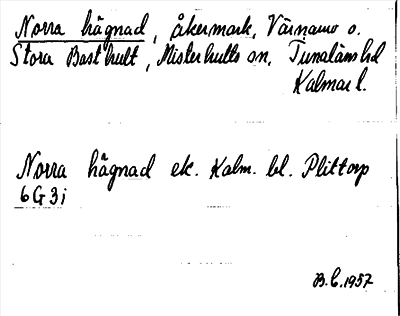 Norra hägnad, åkermark, Värnamo o.
Stora Basthult, Misterhults sn, Tunaläns hd
Kalmar l.
Norra hägnad ek. Kalm. bl. Plittorp
6G3i
B.C. 1957